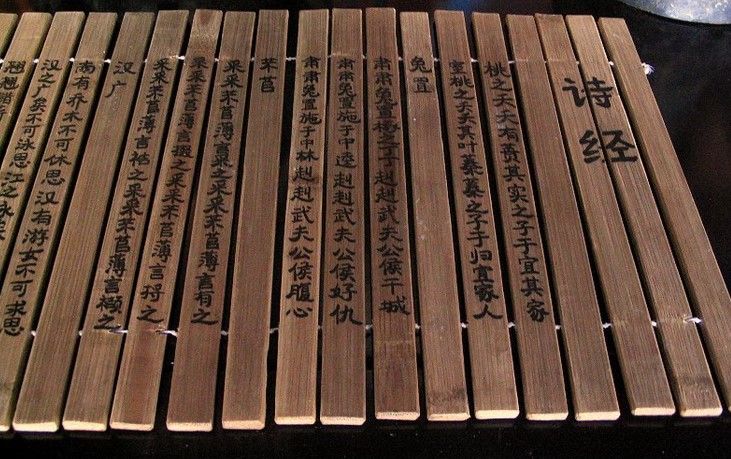 诗经
桃之夭夭有蕡其实之子于宜其家
室桃之夭夭其叶蓁蓁之子于归宜家人
兔罝
肃肃兔罝椓之丁丁赳赳武夫公侯干城
肃肃兔罝施于中逵赳赳武夫公侯好仇
肃肃兔罝施于中林赳赳武夫公侯腹心
芣苢
采采芣苢薄言采之采采芣苢薄言有之
采采芣苢薄言掇之采采芣苢薄言捋之
采采芣苢薄言袺之采采芣苢薄言襭之
汉广
南有乔木不可休思汉有游女不可求思
汉之广矣不可泳思江之永矣
翘翘错薪